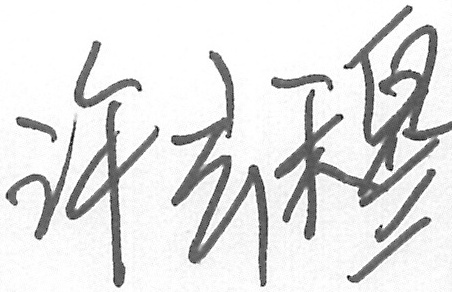 许玄穆